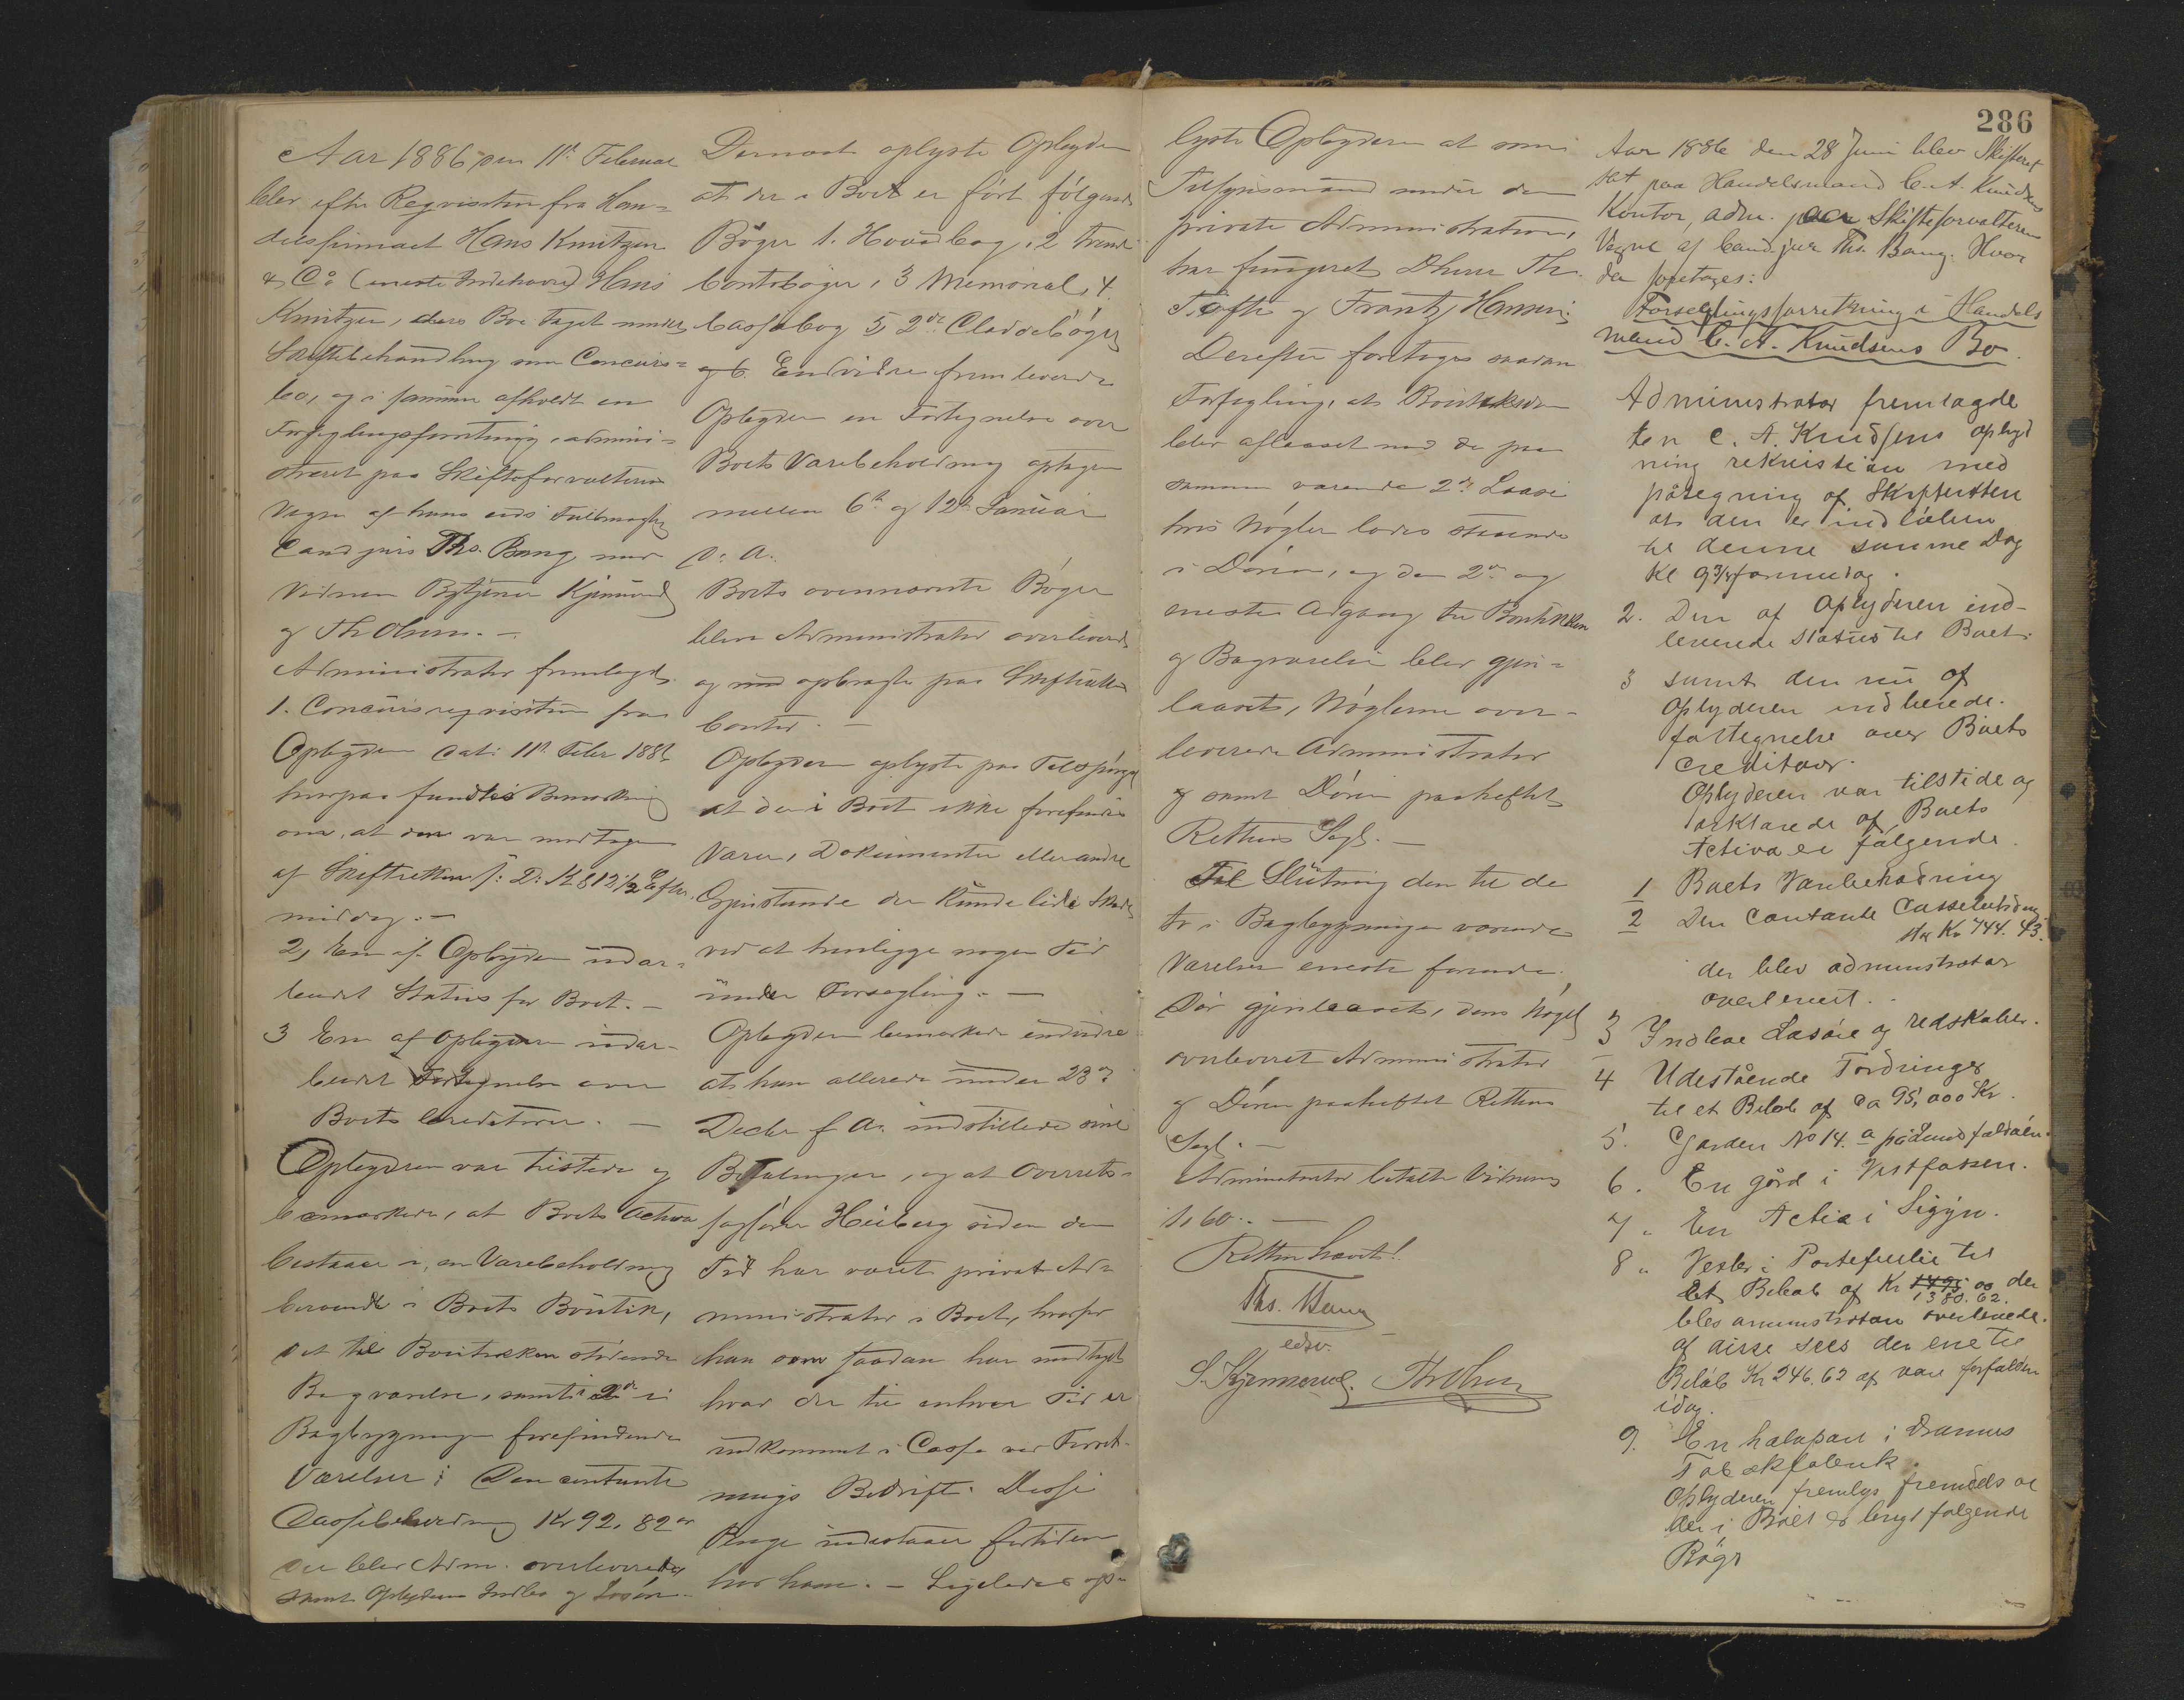 Aar 1886 den 11te Februar
blev efter Reqvisition fra Han-
delsfirmaet Hans Kmitzen
& Co (eneste Indehaver) Hans
Kmitzen, deres Bo taget under
Skiftebehandling som Concurs-
bo, og i samme afholdt en
Forseglingsforretning, admini-
streret paa Skifteforvalterens
Vegne af hans eds Fuldmægtig
Cand juris Ths. Bang med
Vidnerne Bytjener Kjemerud
og Th Olsen. —
Administrator fremlagde
1. Concursreqvisition fra
Opbyderen dat: 11te Febr 1886
hvorpaa fandtes Bemærkning
om, at den var modtagen
af Skifteretten s: D: Kl 12 1/2 Efter-
middag. —
2, Em af Opbyderen udar-
beidet Status for Boet. —
3 En af Opbyderen udar-
beidet Fortegnelse over
Boets Creditorer. —
Opbyderen var tilstede og
bemærkede, at Boets Activa
bestaar i, en Varebeholdning
beroende i Boets Boutik,
det til Boutikken stødende
Bagværelse, samt i 2de i
Bagbygningen forefindende
Værelser; Den contante
Cassebeholdning Kr 92. 82 ør
der blev Adm. overleveret
samt Opbyderens Indbo og Løsøre.
Dernæst oplyste Opbyderen
at der i Boet er ført følgende
Bøger 1. Hovedbog, 2 trende
Contobøger, 3 Memorial, 4.
Cassabog 5, 2de Cladebøger
og 6. Endvidere fremleverede
Opbyderen en Fortegnelse over
Boets Varebeholdning optagen
mellem 6te og 12te Januar
d: A.
Boets ovennævnte Bøger
bleve Administrator overleveret
og med opbragte paa Skifterettens
Contor. —
Opbyderen oplyste paa Tilspørgsel
at der i Boet ikke forefindes
Varer, Dokumenter eller andre
Gjenstande der kunde lide Skade
ved at henligge nogen Tid
under Forsegling. —
Opbyderen bemærkede endvidere
at han allerede under 23de
Decbr f. A. indstillede sine
Betalinger, og at Overrets-
sagfører Heiberg siden den
Tid har været privat Ad-
ministrator i Boet, hvorfor
han som saadan har modtaget
hvad der til enhver Tid er
indkommet i Casse ved Forret-
nings Bedrift. Disse
Penge indestaar fortiden
hos ham. — Ligeledes op-
lyste Opbyderen at som
Tilsynsmænd under den
private Administration,
har fungeret Dherrer Th.
Tofte og Frantz Hansen;
Derefter foretoges saadan
Forsegling, at Boutikdøren
blev aflaaset med de paa
samme værende 2de Laase
hvis Nøgler lodes staaende
i Døren, og den 2den og
eneste Adgang til Boutikken
og Bagværelse blev gjen-
laaset, Nøglerne over-
leverede Administrator
og samt Døren paaheftet
Rettens Segl. —
Til Slutning den til de
to i Bagbygningen værende
Værelser eneste førende
Dør gjenlaaset, dens Nøgel
overleveret Administrator
og Døren paaheftet Rettens
Segl. —
Administrator betalte Vidnerne
1, 60. —
Retten hævet!
Ths. Bang
edsv.
S. Kjemerud. Th Olsen
286
Aar 1886 den 28 Juni blev Skifteret
sat paa Handelsmand C. A. Knudsens
Kontor, adm. paa Skifteforvalterens
Vegne af Cand. jur Ths. Bang. Hvor
da foretages:
Forseglingsforretning i Handels
mand C. A. Knudsens Bo.
Administrator fremlagde
den C. A. Knudsens opbyd
ning rekvisition med
påtegning af Skifteretten
at den er indløben
til denne samme Dag
Kl 9 3/4 formidag.
2. Den af Opbyderen ind-
leverede status til Boet.
3 samt den nu af
Opbyderen indleverede.
fortegnelse over Boets
Creditorer.
Opbyderen var tilstede og
erklærede af Boets
Activa er følgende.
1 Boets Varebeholdning
2 Den Contante Cassebeholdning
stor Kr 744. 43.
der blev administrator
overleveret.
3 Indboe Løsøre og redskaber.
4 Udestående Fordringer
til et Beløb af Ca 95,000 Kr.
5. Gården No 14. a på
6. En gård i Vestfossen.
7. En Actie i Sigyn.
8. Vexler i Portefeulie til
Et Beløb af Kr 1495 00 der
1380. 62.
blev administrator overleverede.
af disse sees den ene til
Beløb Kr 246. 62 at være forfalden
idag.
9. En halvpart i Dramens
Tobakfabrik.
Opbyderen fremlys fremdeles at
der i Boet er brugt følgende
Bøger